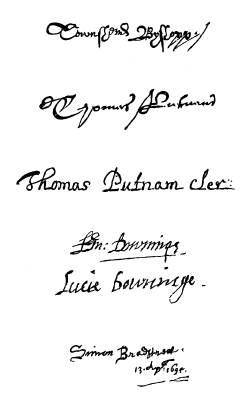 Townsend Bysshopp
Thomas Putnam
Thomas Putnam cler:
Em: Downinge
Lucie Downinge.
Simon Bradstreet.